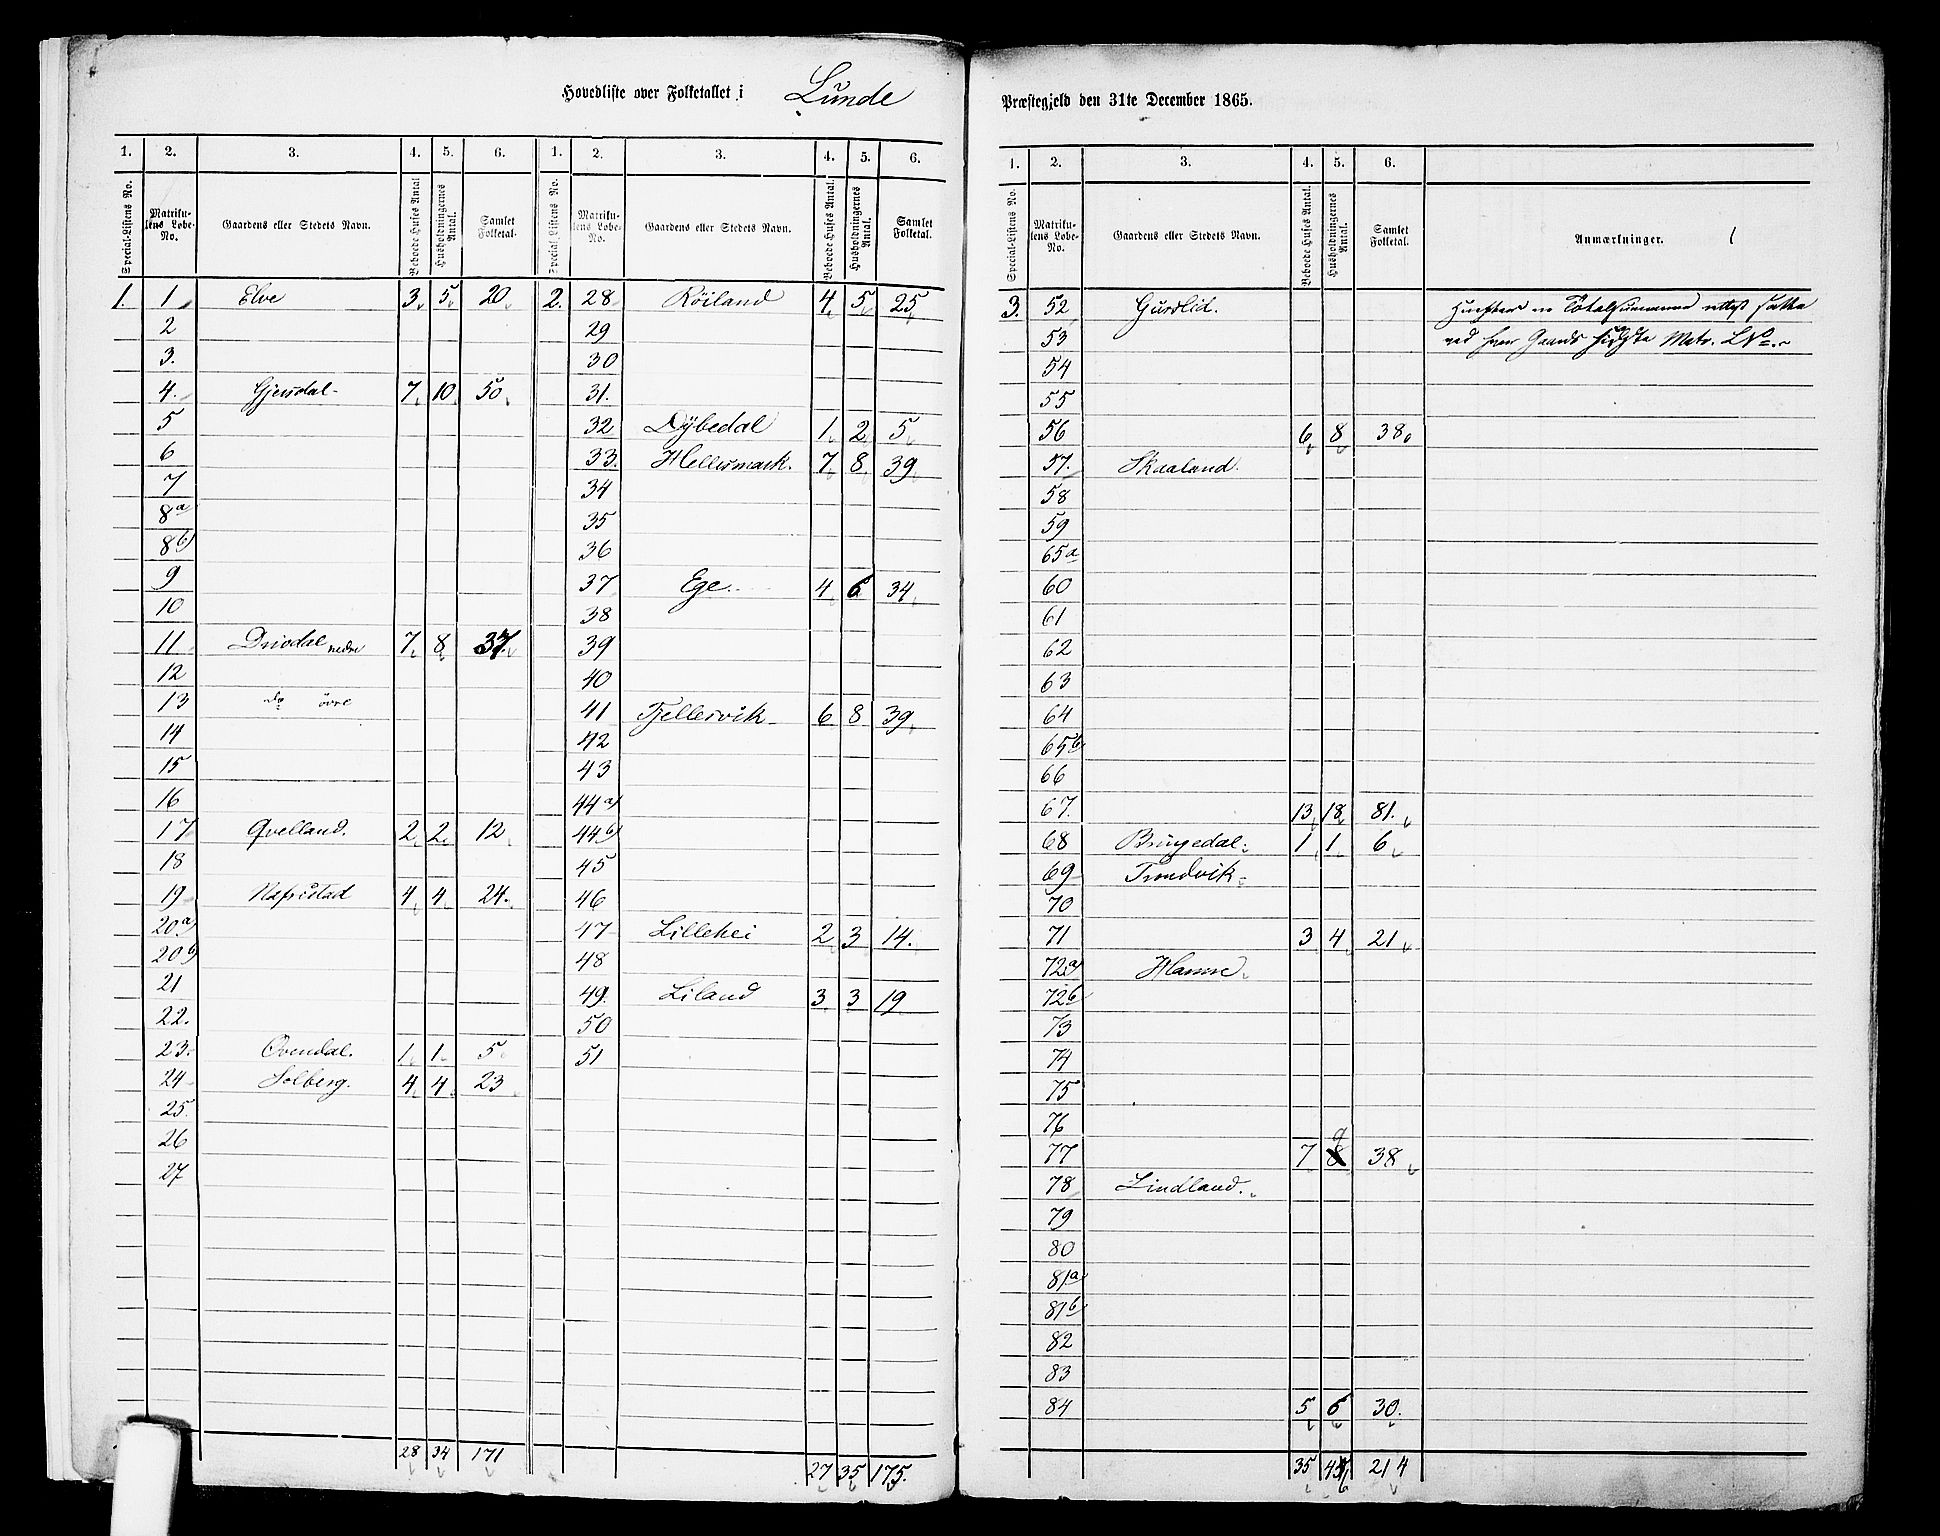 Hovedliste over Folketallet i Lunde
1. 2. 3. 4. 5. 6. 1. 2. 3. 4. 5. 6.
Special-Listens No. Matrikulens Løbe-No. Gaardens eller Stedets Navn. Beboede Huses Antal Husholdningernes Antal. Samlet Folketal. Special-Listens No. Matrikulens Løbe-No. Gaardens eller Stedets Navn. Beboede Huses Antal. Husholdningernes Antal. Samlet Folketal.
1. 1 Elve 3 5 20 2. 28 Röiland 4 5 25
2 29
3. 30
4. Gjersdal 7 10 50 31.
5 32 Dÿbedal 1 2 5
6 33. Hellersmark. 7 8 39
7 34
8a 35
8b) 36
9 37 Ege. 4 6 34
10 38
11 Drivdal nedre 7 8 37. 39
12 40
13 do övre 41 Fjellesvik 6 8 39
14 42
15 43
16 44a)
17 Qvelland. 2 2 12 44b)
18 45
19 Refsstad 4 4 24. 46
20.a) 47 Lillehei 2 3 14.
20b) 48
21 49. Liland 3 3 19
22. 50
23. Ovendal. 1 1 5 51
24 Solberg. 4 4 23
25.
26
27
28 34 171 27 35 175.
Præstegjeld den 31te December 1865.
1. 2. 3. 4. 5. 6.
Special-Listens No. Matrikulens Løbe-No. Gaardens eller Stedets Navn. Beboede Huses Antal. Husholdningernes Antal. Samlet Folketal. Anmærkninger. 1
3. 52 Gursslid. Totalsummerne
53 ved hver Gaards sidste Matr. LNo.
54
55
56 6 8 38
57. Skaaland.
58
59
65a
60
61
62
63
64
65b
66
67. 13 18 81.
68 Bringedal. 1 1 6
69 Trondvik
70
71 3 4 21
72a) Hamre
72b
73
74
75
76
77 7 8 9 38
78 Lindland.
79
80
81a
81b
82
83
84 5 6 30.
35 45 6 214